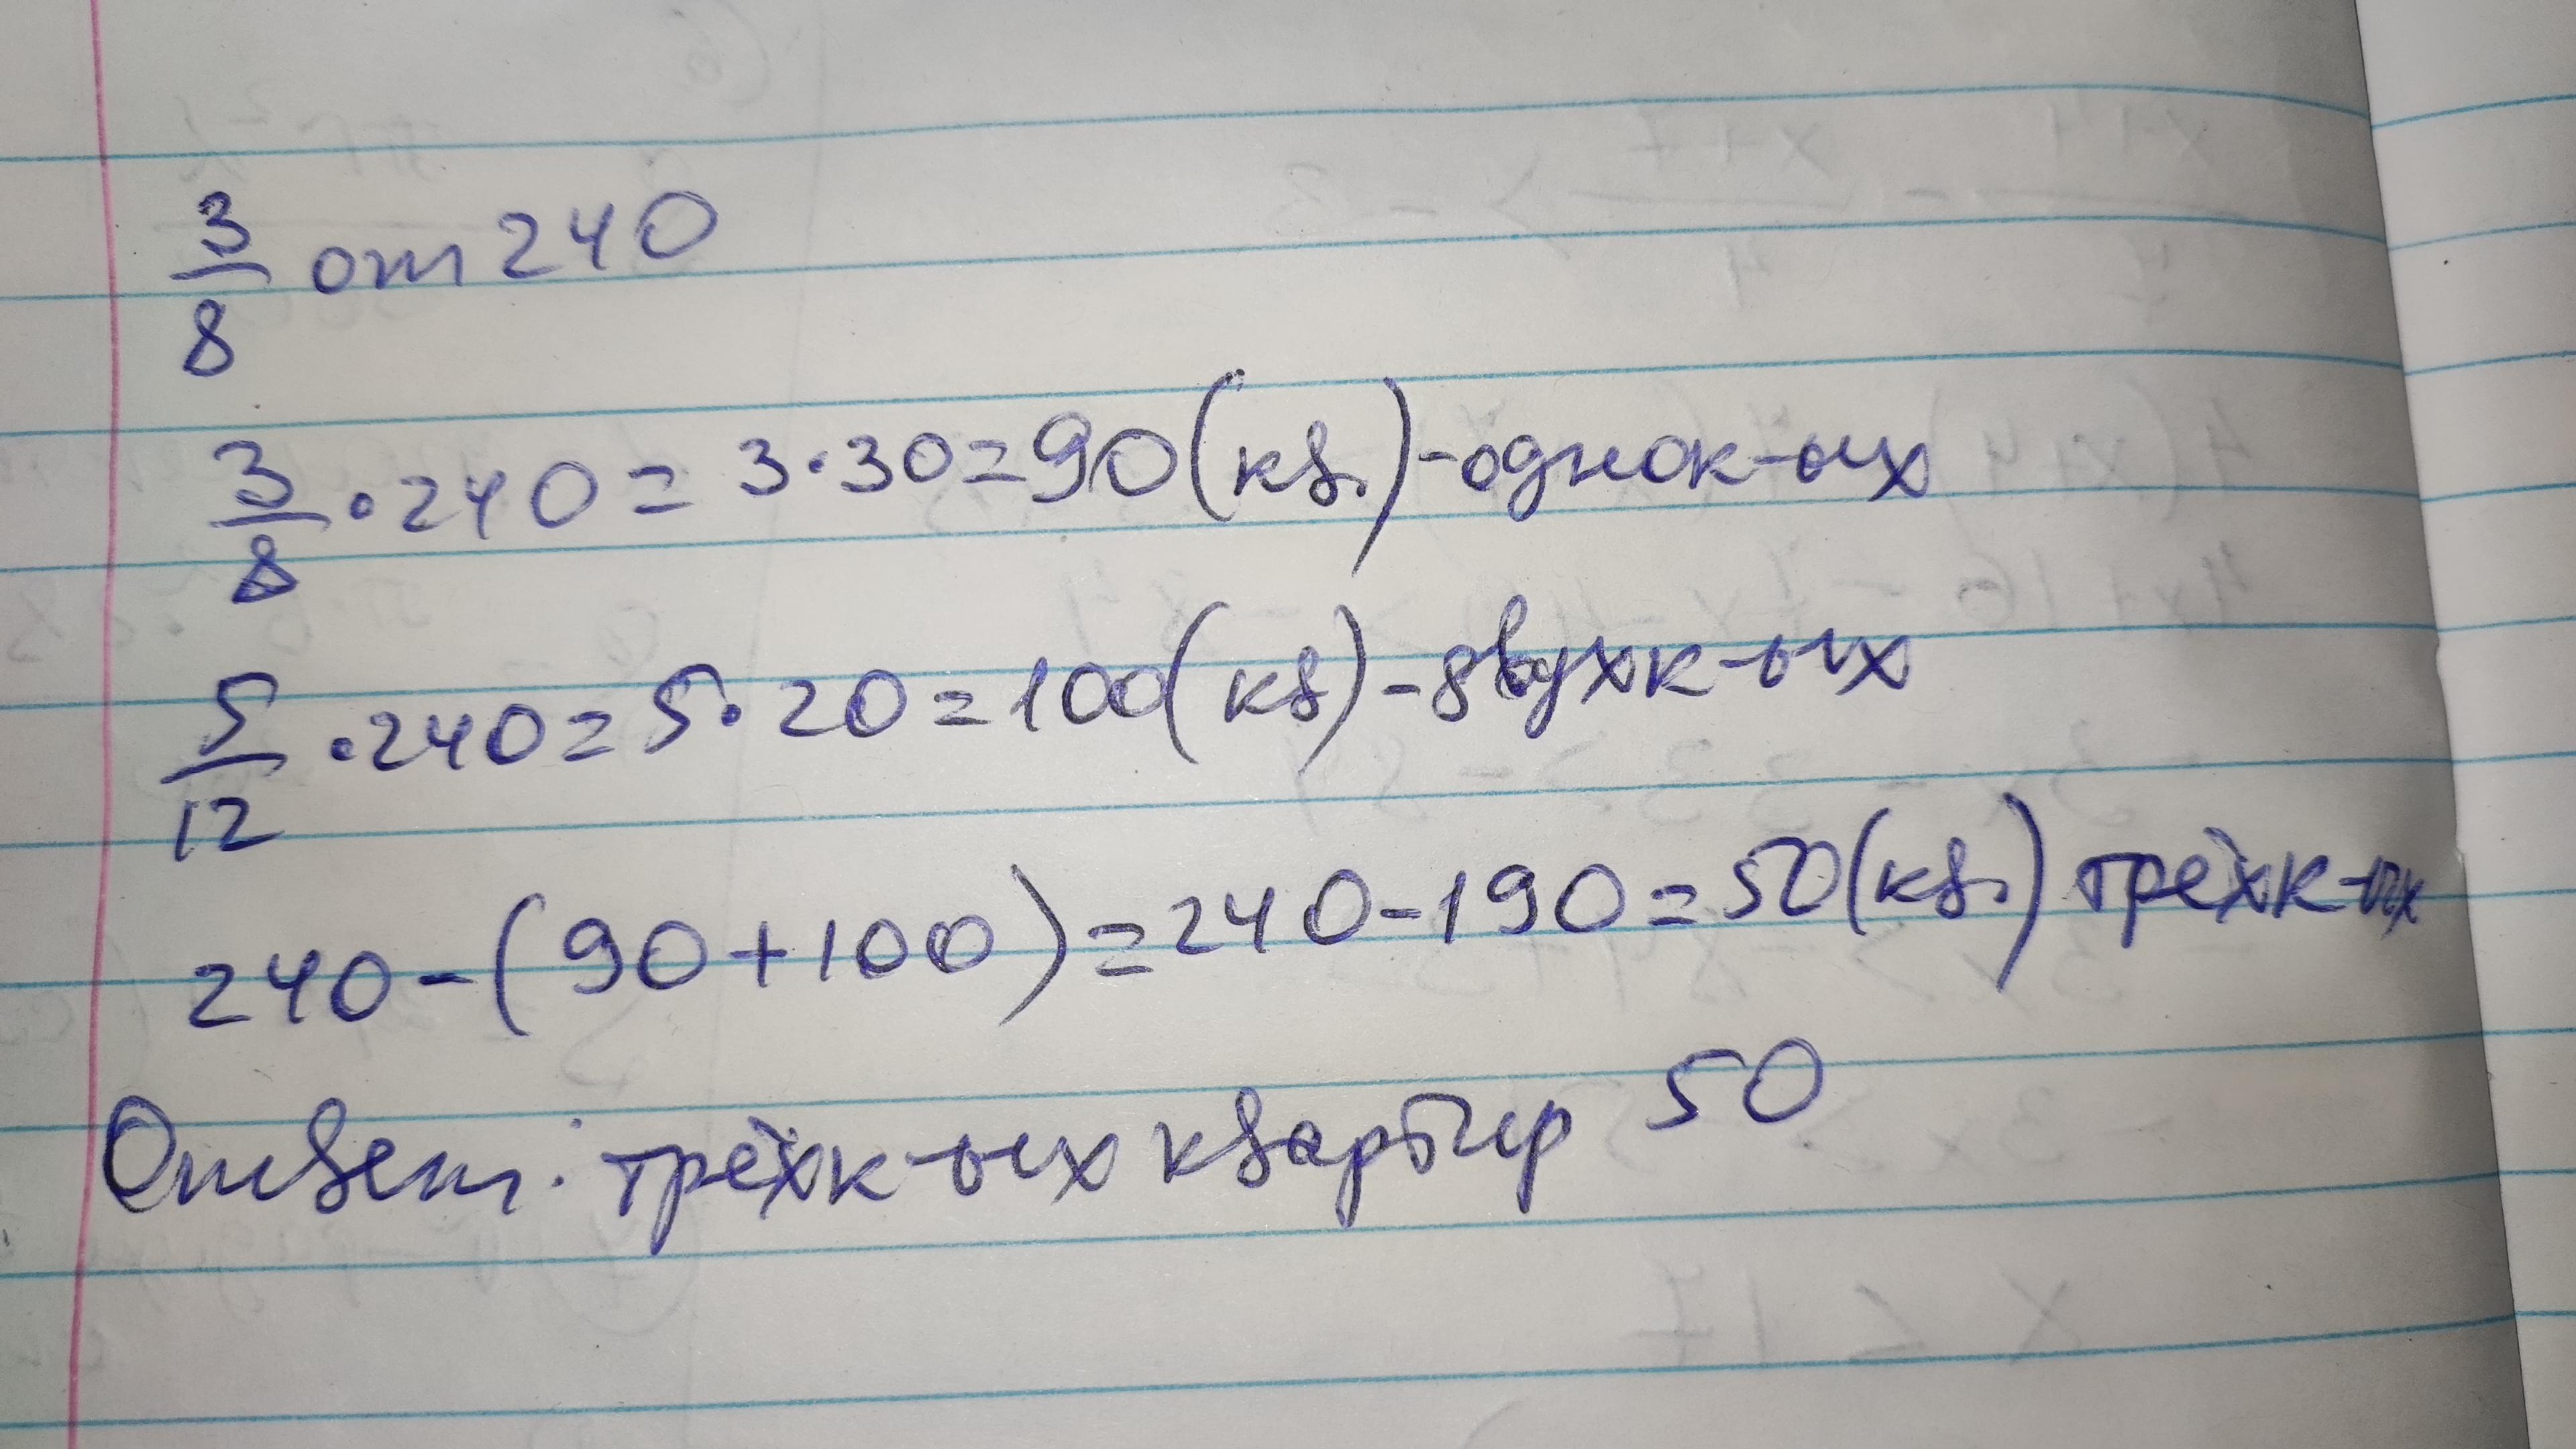 3/8 от 240
3/8 · 240 = 3 · 30 = 90 (кв.) - однок-ых
5/12 · 240 = 5 · 20 = 100 (кв) - двухк-ых
240 - (90 + 100) = 240 - 190 = 50 (кв.) трёхк-ых
Ответ: трёхк-ых квартир 50